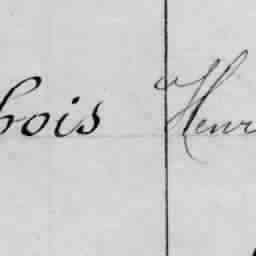 bois Henr